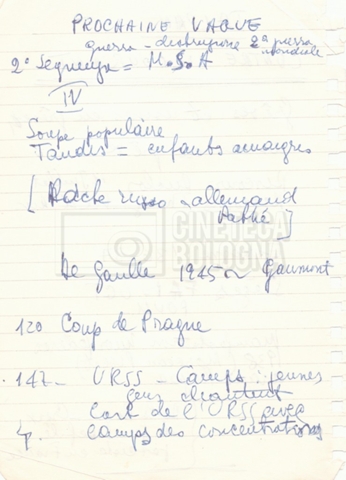 PROCHAINE VAGUE
guerra - distruzione 2a guerra mondiale
2° Sequenza = M.S.A
IV
Soupe populaire
Taudis = enfants amaigris
[ Pacte russo - allemand
Pathé ]
CINETECA
BOLOGNA
De Gaulle 1945 Gaumont
120 Coup de Prague
147 - URSS - Camps : jeunes
gens chantent
Carte de l'URSS avec
camps de concentrations